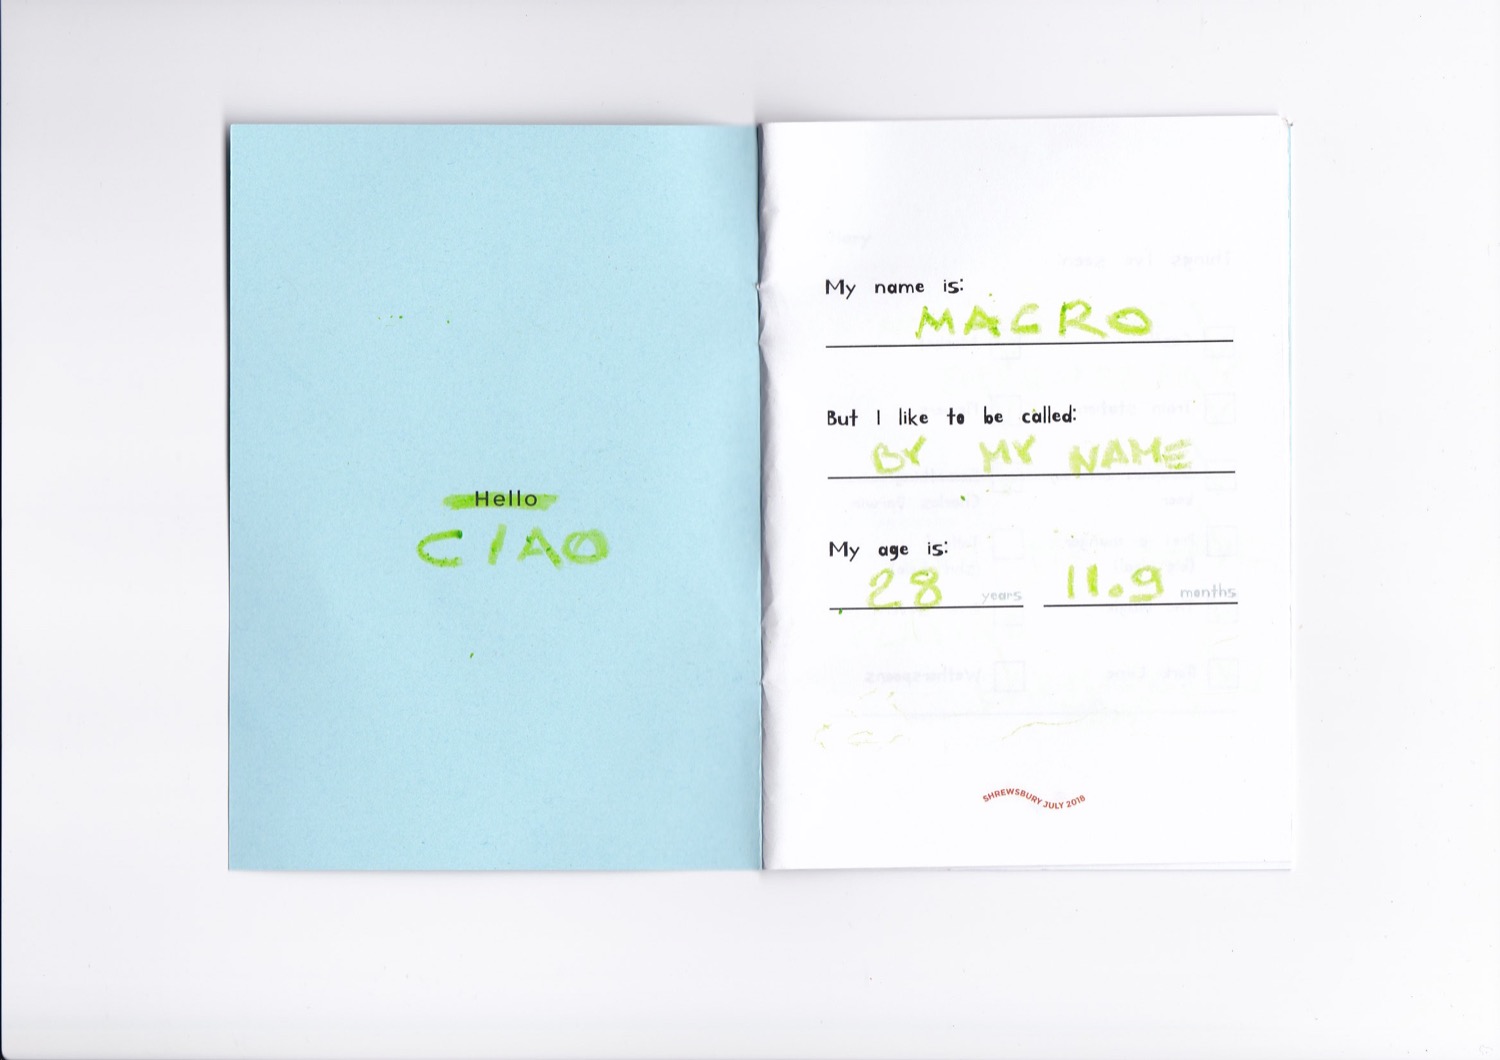 Hello
CIAO
My name is:
MACRO
But I like to be called:
BY MY NAME
My age is:
28 years 11.9 months
SHREWSBURY JULY 2018